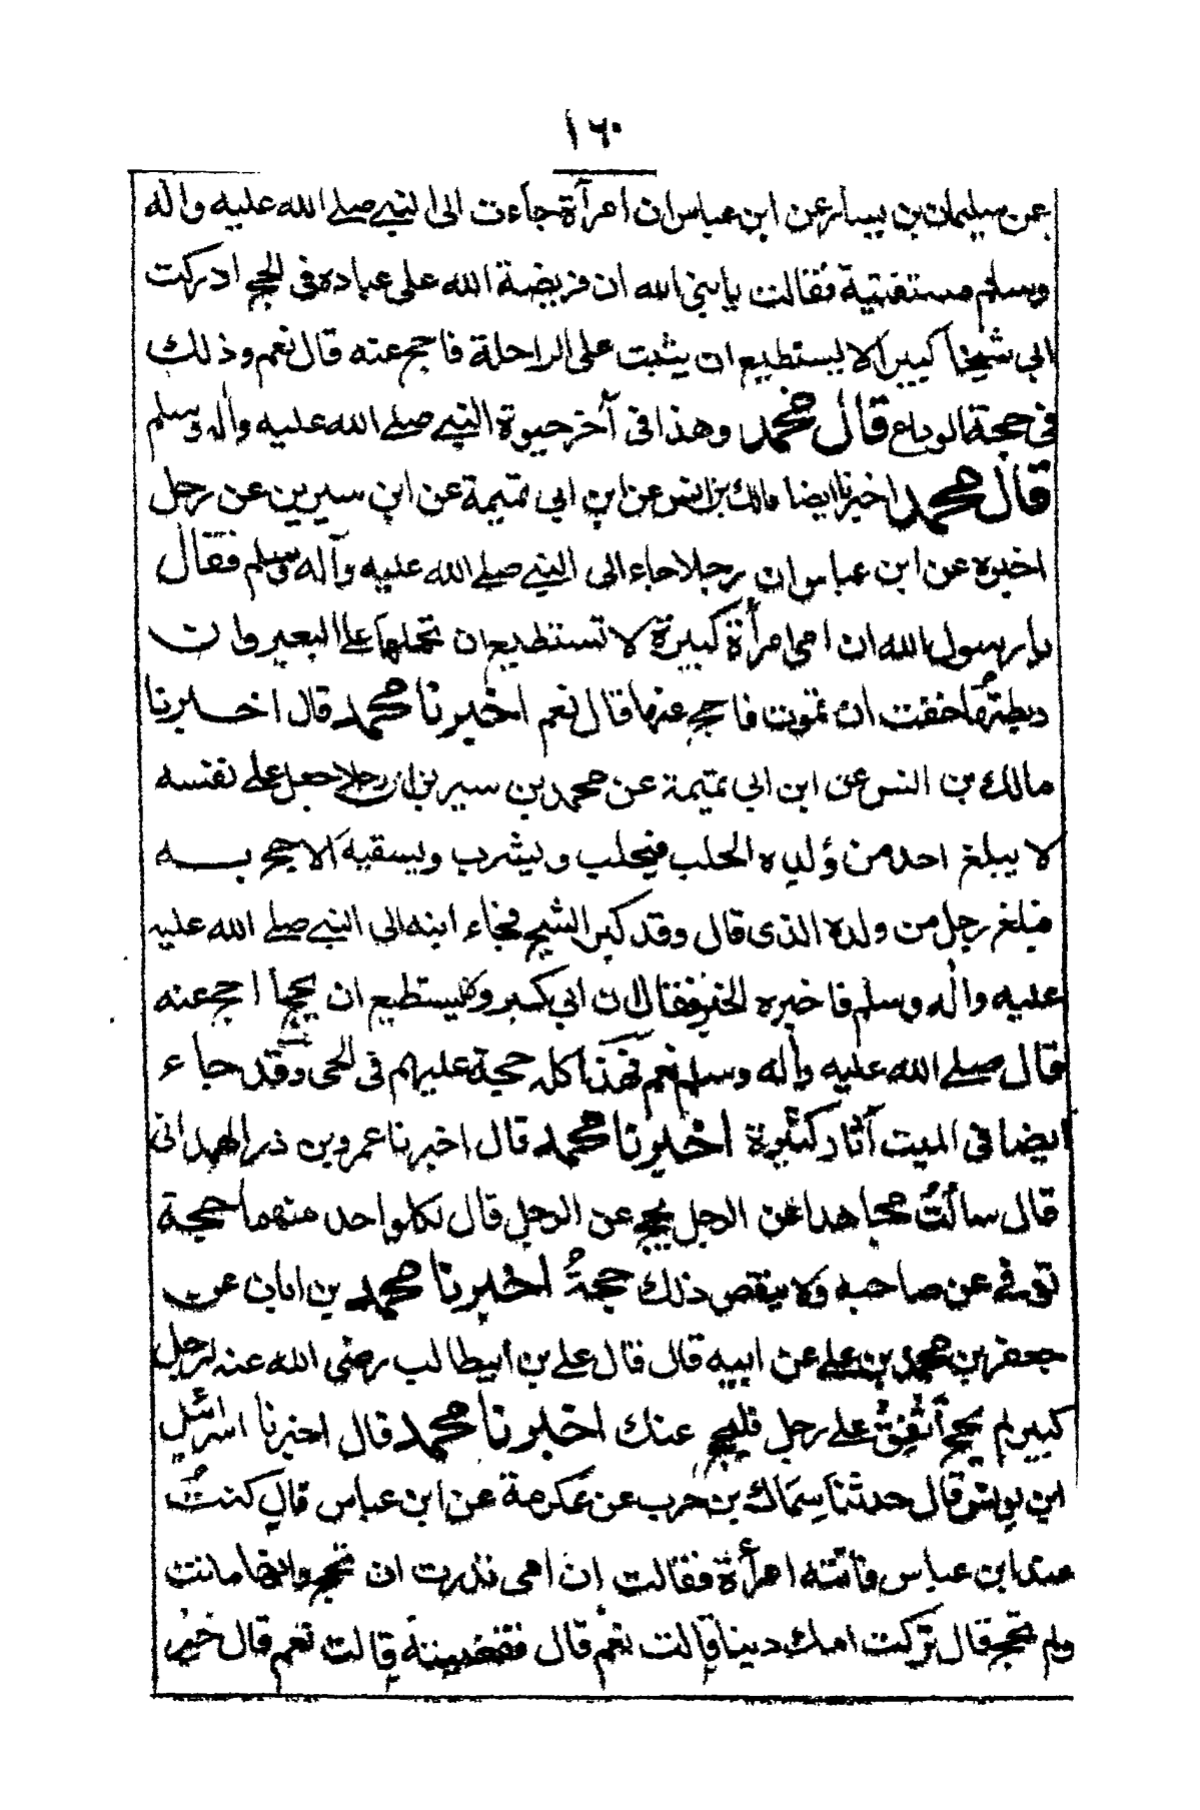 ١٦٠
عن سليمان بن يسار عن ابن عباس ان امرأة جاءت الى النبي صلے الله عليه واٰله
وسلم مستفتية فقالت يا نبي الله ان فريضة الله على عباده فى الحج ادركت
ابي شيخا كبيرا لا يستطيع ان يثبت على الراحلة فاحج عنه قال نعم وذلك
فى حجة الوداع قال محمد وهذا فى آخر حيوة النبي صلے الله عليه واٰله وسلم
قال محمد اخبرنا ايضا مالك بن انس عن ابن ابي تميمة عن ابن سيرين عن رجل
اخبره عن ابن عباس ان رجلا جاء الى النبي صلے الله عليه وآله وسلم فقال
يا رسول الله ان امى امرأة كبيرة لا تستطيع ان تحملها على البعير وان
ربطتها خفت ان تموت فاحج عنها قال نعم اخبرنا محمد قال اخبرنا
مالك بن انس عن ابن ابي تميمة عن محمد بن سيرين ان رجلا جعل على نفسه
لا يبلغ احد من ولده الحلب فيحلب ويشرب ويسقيه الا حج به
فبلغ رجل من ولده الذى قال وقد كبر الشيخ فجاء ابنه الى النبي صلے الله عليه
عليه واٰله وسلم فاخبره الخبر فقال ان ابي كبر ولا يستطيع ان يحج أ احج عنه
قال صلے الله عليه واٰله وسلم نعم فهذا كله حجة عليهم فى الحى وقد جاء
ايضا فى الميت آثار كثيرة اخبرنا محمد قال اخبرنا عمرو بن ذر الهمدانى
قال سألت مجاهدا عن الرجل يحج عن الرجل قال لكل واحد منهما حجة
توفى عن صاحبه ولا ينقص ذلك حجة اخبرنا محمد بن ابان عن
جعفر بن محمد بن على عن ابيه قال قال على بن ابيطالب رضى الله عنه لرجل
كبير لم يحج أنفق على رجل فليحج عنك اخبرنا محمد قال اخبرنا اسرائيل
ابن يونس قال حدثنا سماك بن حرب عن عكرمة عن ابن عباس قال كنت
عند ابن عباس فاتته امرأة فقالت ان امى نذرت ان تحج وانها ماتت
ولم تحج قال تركت امك دينا قالت نعم قال فقضيته قالت نعم قال خير